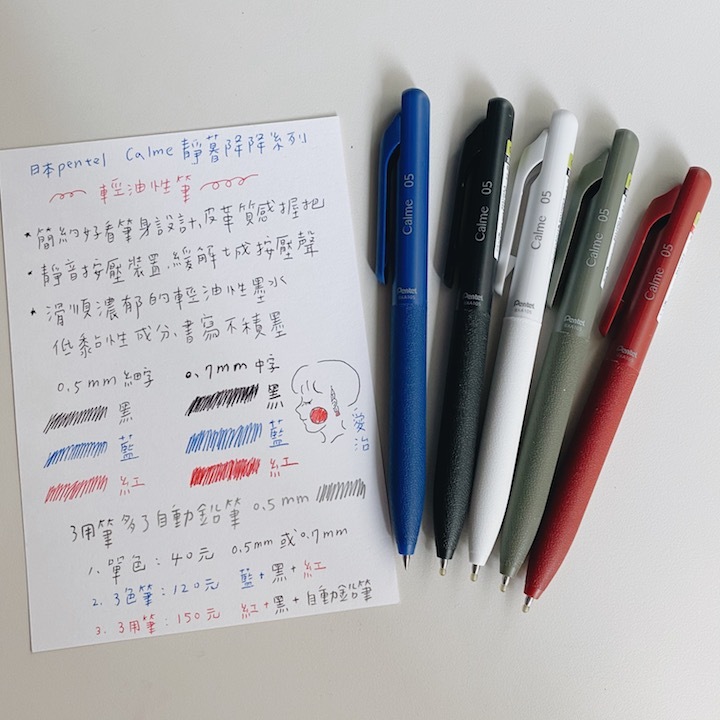 日本pentel Calme 靜暮降降系列
輕油性筆
* 簡約好看筆身設計,皮革質感握把
* 靜音按壓裝置.緩解七成按壓聲
* 滑順濃郁的輕油性墨水
低黏性成分.書寫不積墨
0.5mm 細字 0.7mm 中字
黑 黑
藍 藍
紅 紅
愛治
3用筆多了自動鉛筆 0.5mm
1. 單色:40元 0.5mm 或 0.7mm
2. 3色筆:120元 藍+黑+紅
3. 3用筆:150元 紅+黑+自動鉛筆
Calme 05
Calme 05
Pentel
Calme 05
Pentel
Calme 05
Pentel
Calme 05